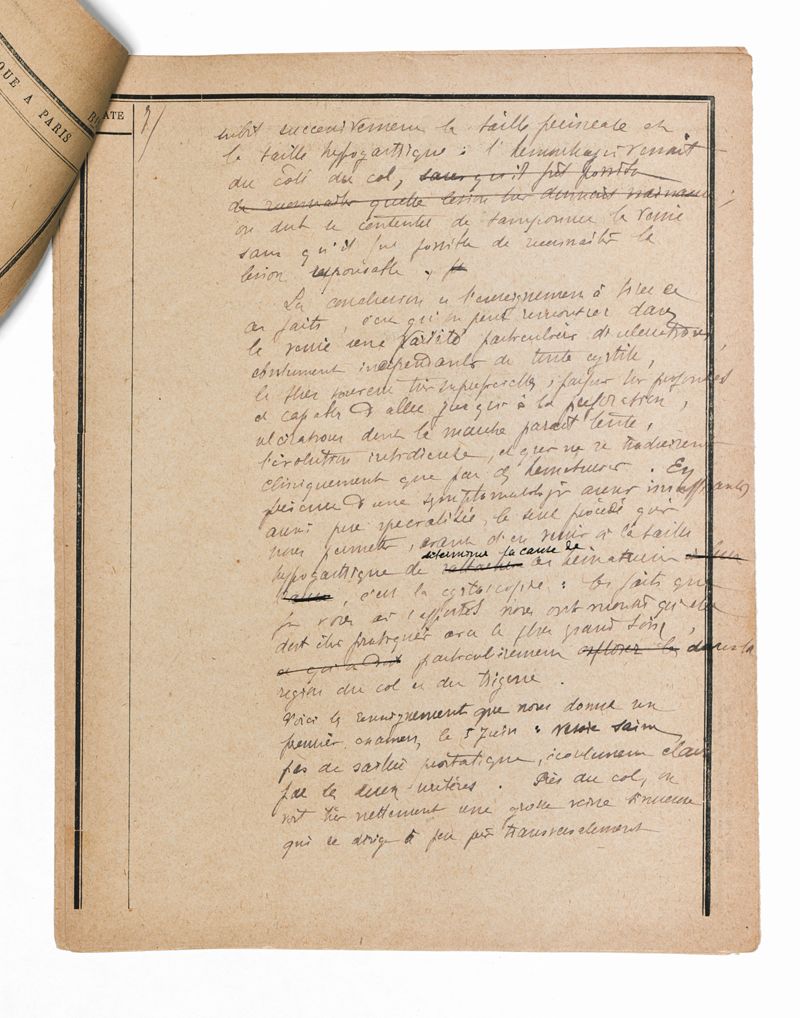 QUE A PARIS
R
ATE
7/
subit successivement la taille périnéale et
la taille hypogastrique : l'hémorrhagie venait
du côté du col, sans qu'il fût possible
de reconnaître quelle lésion lui donnait naissance ;
on dut se contenter de tamponner la vessie
sans qu'il fut possible de reconnaître la
lésion responsable.
La conclusion et l'enseignement à tirer de
ces faits, c'est qu'on peut rencontrer dans
la vessie une variété particulière d'ulcérations,
absolument indépendante de toute cystite,
le plus souvent très superficielles, parfois très profondes
et capables d'aller jusqu'à la perforation,
ulcérations dont la marche paraît lente,
l'évolution insidieuse, et qui ne se traduisent
cliniquement que par des hématuries. En
présence d'une symptomatologie aussi insuffisante,
aussi peu spécialisée, le seul procédé qui
nous permette, avant d'en venir à la taille
déterminer la cause de
hypogastrique de rattacher ces hématuries à leur
cause, c'est la cystoscopie : les faits que
je viens de rapporter nous ont montré qu'elle
doit être pratiquée avec le plus grand soin,
et qui a doit particulièrement explorer la dans la
région du col et du trigone.
Voici les renseignements que nous donne un
premier examen, le 5 Juin : vessie saine,
pas de saillie prostatique, écoulement clair
par les deux uretères. Près du col, on
voit très nettement une grosse veine sinueuse
qui se dirige à peu près transversalement